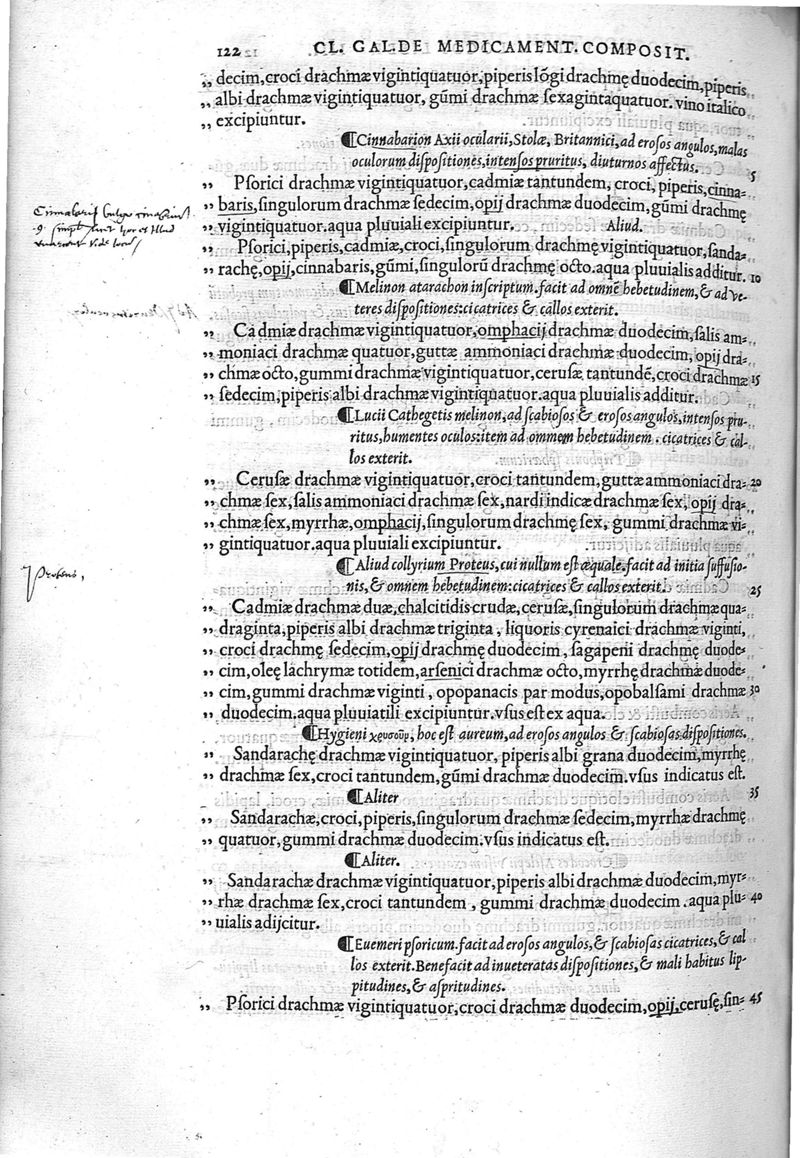 122 CL. GAL. DE MEDICAMENT. COMPOSIT.
„ decim, croci drachmæ vigintiquatuor, piperis lõgi drachmę duodecim, piperis
„ albi drachmæ vigintiquatuor, gũmi drachmæ sexagintaquatuor. vino italico
„ excipiuntur.
¶ Cinnabarion Axii ocularii, Stolæ, Britannici, ad erosos angulos, malas
oculorum dispositiones, intensos pruritus, diuturnos affectus. 5
„ Psorici drachmæ vigintiquatuor, cadmiæ tantundem, croci, piperis, cinna-
„ baris, singulorum drachmæ sedecim, opij drachmæ duodecim, gũmi drachmę
„ vigintiquatuor. aqua pluuiali excipiuntur. Aliud.
„ Psorici, piperis, cadmiæ, croci, singulorum drachmę vigintiquatuor, sanda-
„ rachę, opij, cinnabaris, gũmi, singulorũ drachmę octo. aqua pluuialis additur. 10
¶ Melinon atarachon inscriptum. facit ad omnẽ hebetudinem, & ad ve-
teres dispositiones: cicatrices & callos exterit.
„ Cadmiæ drachmæ vigintiquatuor, omphacij drachmæ duodecim, salis am-
„ moniaci drachmæ quatuor, guttæ ammoniaci drachmæ duodecim, opij dra-
„ chmæ octo, gummi drachmæ vigintiquatuor, cerusæ tantundẽ, croci drachmæ 15
„ sedecim, piperis albi drachmæ vigintiquatuor. aqua pluuialis additur.
¶ Lucii Cathegetis melinon, ad scabiosos & erosos angulos, intensos pru-
ritus, humentes oculos: item ad omnem hebetudinem. cicatrices & cal-
los exterit.
„ Cerusæ drachmæ vigintiquatuor, croci tantundem, guttæ ammoniaci dra- 20
„ chmæ sex, salis ammoniaci drachmæ sex, nardi indicæ drachmæ sex, opij dra-
„ chmæ sex, myrrhæ, omphacij, singulorum drachmę sex, gummi drachmæ vi-
„ gintiquatuor. aqua pluuiali excipiuntur.
Proteus,
¶ Aliud collyrium Proteus, cui nullum est æquale. facit ad initia suffusio-
nis, & omnem hebetudinem: cicatrices & callos exterit. 25
„ Cadmiæ drachmæ duæ, chalcitidis crudæ, cerusæ, singulorum drachmæ qua-
„ draginta, piperis albi drachmæ triginta, liquoris cyrenaici drachmæ viginti,
„ croci drachmę sedecim, opij drachmę duodecim, sagapeni drachmę duode-
„ cim, oleę lachrymæ totidem, arsenici drachmæ octo, myrrhę drachmæ duode-
„ cim, gummi drachmæ viginti, opopanacis par modus, opobalsami drachmæ 30
„ duodecim. aqua pluuiatili excipiuntur. vsus est ex aqua.
¶ Hygieni χρυσοῦν, hoc est aureum, ad erosos angulos & scabiosas dispositiones.
„ Sandarachę drachmæ vigintiquatuor, piperis albi grana duodecim, myrrhę
„ drachmæ sex, croci tantundem, gũmi drachmæ duodecim. vsus indicatus est.
¶ Aliter 35
„ Sandarachæ, croci, piperis, singulorum drachmæ sedecim, myrrhæ drachmę
„ quatuor, gummi drachmæ duodecim. vsus indicatus est.
¶ Aliter.
„ Sandarachæ drachmæ vigintiquatuor, piperis albi drachmæ duodecim, myr-
„ rhæ drachmæ sex, croci tantundem, gummi drachmæ duodecim. aqua plu- 40
„ uialis adijcitur.
¶ Euemeri psoricum. facit ad erosos angulos, & scabiosas cicatrices, & cal
los exterit. Benefacit ad inueteratas dispositiones, & mali habitus lip-
pitudines, & aspritudines.
„ Psorici drachmæ vigintiquatuor, croci drachmæ duodecim, opij, cerusę, sin- 45